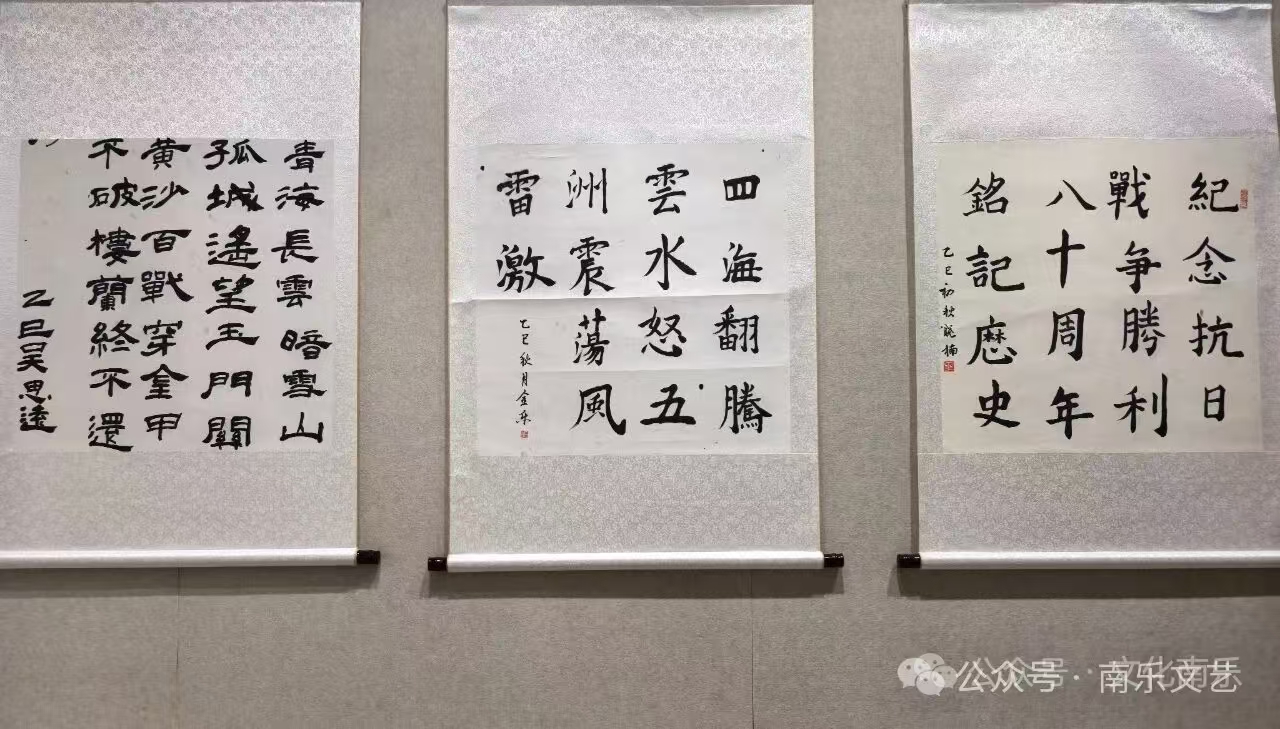 紀念抗日
戰争勝利
八十周年
銘記厯史
乙巳初秋
四海翻騰
雲水怒五
洲震蕩風
雷激
乙巳秋月金
青海長雲暗雪山
孤城遙望玉門關
黄沙百戰穿金甲
不破樓蘭終不還
乙巳吴思遠
公众号 · 南乐文艺
公众号 · 文化南乐